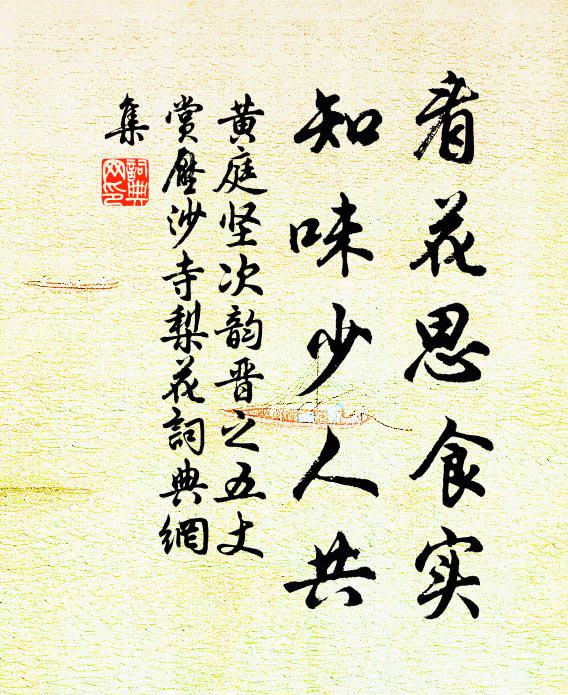 看花思食实
知味少人共
黄庭坚次韵晋之五丈
赏压沙寺梨花詞典網
集
詞典
网印